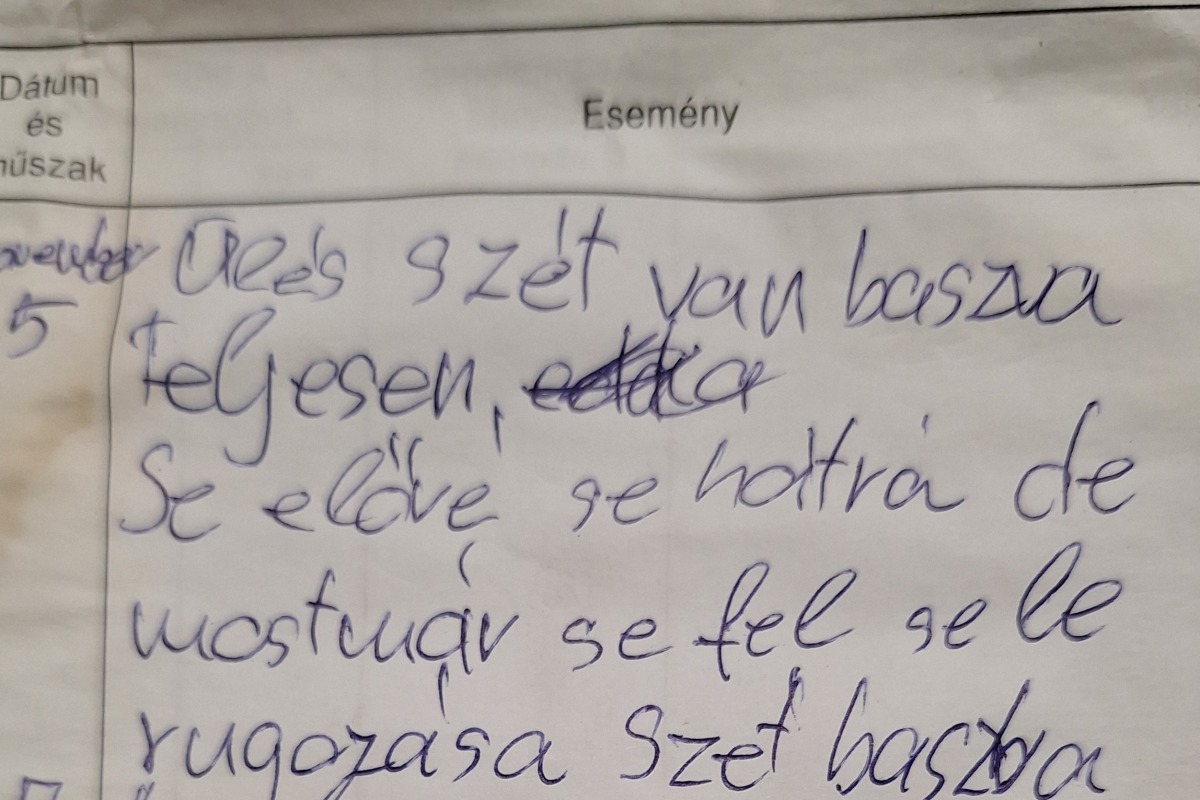 Dátum
és
műszak
Esemény
november Ülés szét van baszva
5
teljesen,
Se előre se hátrá de
mostmár se fel se le
rugozása szét baszva